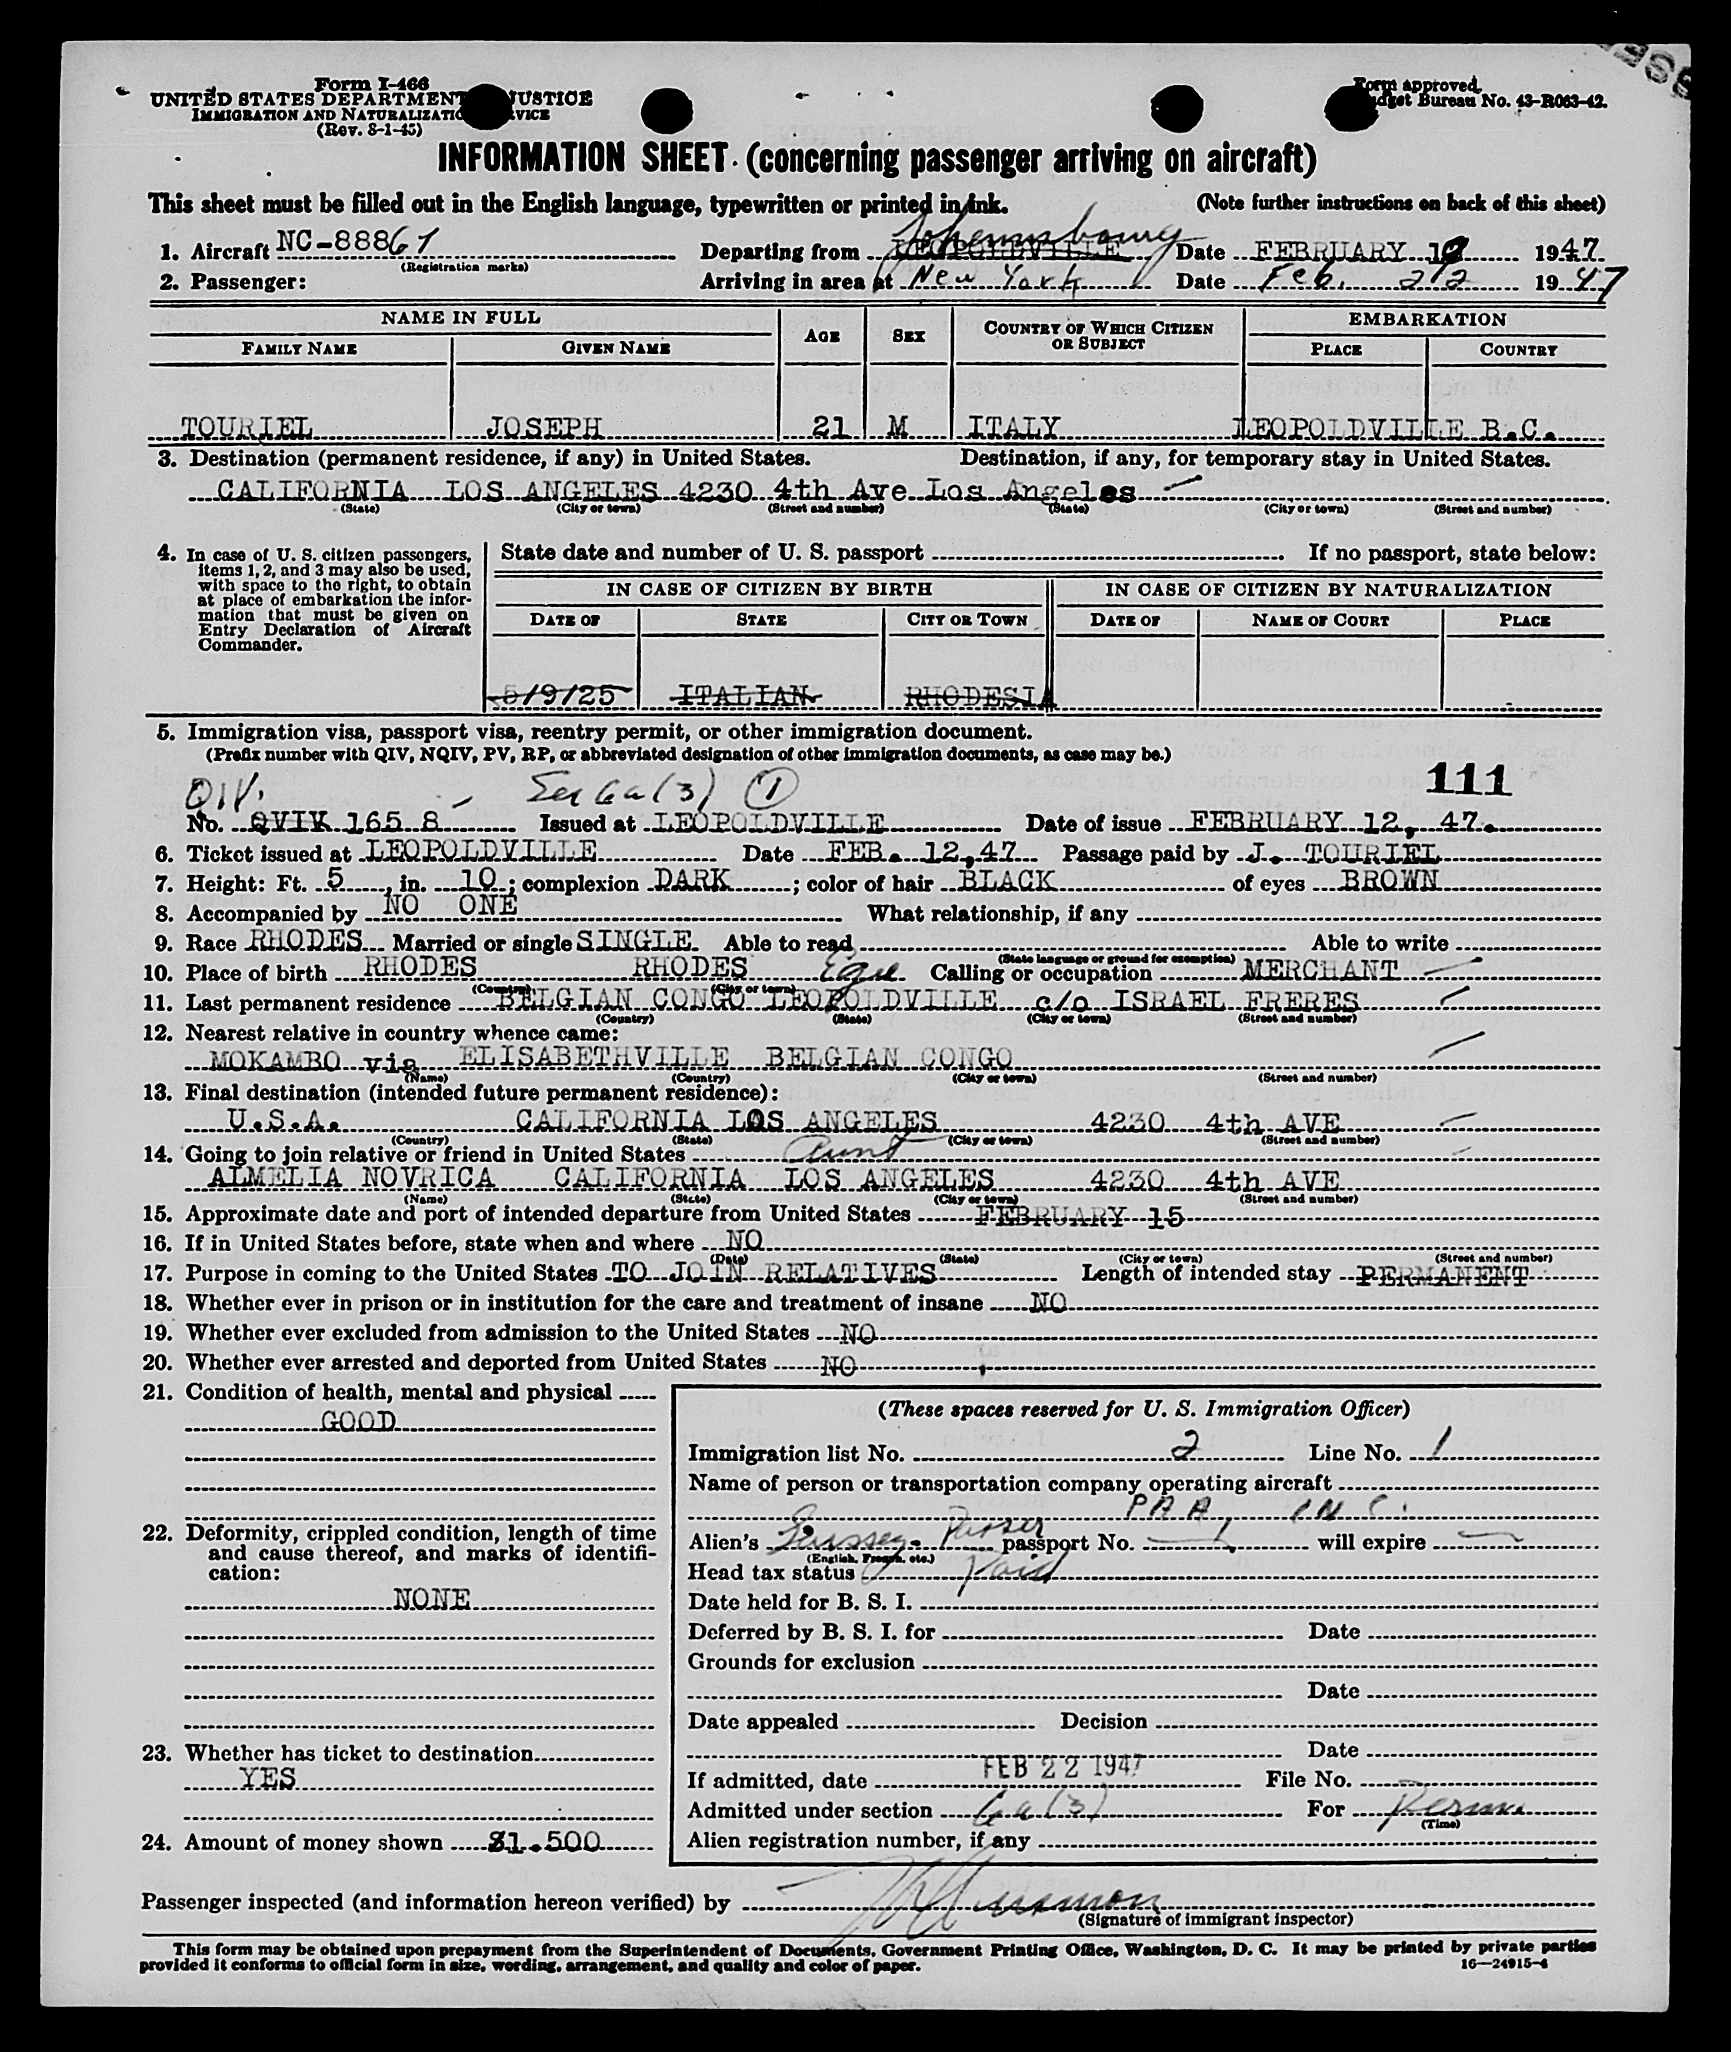 Form I-466
UNITED STATES DEPARTMENT JUSTICE
IMMIGRATION AND NATURALIZATION SERVICE
(Rev. 8-1-45)
Form approved.
Budget Bureau No. 43-R063-42.
INFORMATION SHEET (concerning passenger arriving on aircraft)
This sheet must be filled out in the English language, typewritten or printed in ink. (Note further instructions on back of this sheet)
Johannesbourg
1. Aircraft NC-88861 Departing from LEOPOLDVILLE Date FEBRUARY 1947
(Registration marks)
2. Passenger: Arriving in area at New York Date Feb. 22 1947
NAME IN FULL AGE SEX COUNTRY OF WHICH CITIZEN OR SUBJECT EMBARKATION
FAMILY NAME GIVEN NAME PLACE COUNTRY
TOURIEL JOSEPH 21 M ITALY LEOPOLDVILLE B.C.
3. Destination (permanent residence, if any) in United States. Destination, if any, for temporary stay in United States.
CALIFORNIA LOS ANGELES 4230 4th Ave Los Angeles
(State) (City or town) (Street and number) (State) (City or town) (Street and number)
4. In case of U. S. citizen passengers, items 1, 2, and 3 may also be used, with space to the right, to obtain at place of embarkation the information that must be given on Entry Declaration of Aircraft Commander.
State date and number of U. S. passport If no passport, state below:
IN CASE OF CITIZEN BY BIRTH IN CASE OF CITIZEN BY NATURALIZATION
DATE OF STATE CITY OR TOWN DATE OF NAME OF COURT PLACE
5/9/25 ITALIAN RHODESIA
5. Immigration visa, passport visa, reentry permit, or other immigration document.
(Prefix number with QIV, NQIV, PV, RP, or abbreviated designation of other immigration documents, as case may be.)
QIV. Sec 6a(3) 1 111
No. QVIV 165 8 Issued at LEOPOLDVILLE Date of issue FEBRUARY 12, 47.
6. Ticket issued at LEOPOLDVILLE Date FEB. 12,47 Passage paid by J. TOURIEL
7. Height: Ft. 5, in. 10; complexion DARK; color of hair BLACK of eyes BROWN
8. Accompanied by NO ONE What relationship, if any
9. Race RHODES Married or single SINGLE Able to read Able to write
(State language or ground for exemption)
10. Place of birth RHODES RHODES Calling or occupation MERCHANT
(Country) (City or town)
11. Last permanent residence BELGIAN CONGO LEOPOLDVILLE c/o ISRAEL FRERES
(Country) (State) (City or town) (Street and number)
12. Nearest relative in country whence came:
MOKAMBO via ELISABETHVILLE BELGIAN CONGO
(Name) (Country) (City or town) (Street and number)
13. Final destination (intended future permanent residence):
U.S.A. CALIFORNIA LOS ANGELES 4230 4th AVE
(Country) (State) (City or town) (Street and number)
14. Going to join relative or friend in United States Aunt
ALMELIA NOVRICA CALIFORNIA LOS ANGELES 4230 4th AVE
(Name) (State) (City or town) (Street and number)
15. Approximate date and port of intended departure from United States FEBRUARY 15
16. If in United States before, state when and where NO
(Date) (State) (City or town) (Street and number)
17. Purpose in coming to the United States TO JOIN RELATIVES Length of intended stay PERMANENT
18. Whether ever in prison or in institution for the care and treatment of insane NO
19. Whether ever excluded from admission to the United States NO
20. Whether ever arrested and deported from United States NO
21. Condition of health, mental and physical
GOOD
22. Deformity, crippled condition, length of time and cause thereof, and marks of identification:
NONE
23. Whether has ticket to destination
YES
24. Amount of money shown $1.500
(These spaces reserved for U. S. Immigration Officer)
Immigration list No. 2 Line No. 1
Name of person or transportation company operating aircraft
PAA, INC.
Alien's Purser passport No. will expire
(English, French, etc.)
Head tax status Paid
Date held for B. S. I.
Deferred by B. S. I. for Date
Grounds for exclusion
Date
Date appealed Decision
Date
If admitted, date FEB 22 1947 File No.
Admitted under section 6a(3) For Perm.
(Time)
Alien registration number, if any
Passenger inspected (and information hereon verified) by
(Signature of immigrant inspector)
This form may be obtained upon prepayment from the Superintendent of Documents, Government Printing Office, Washington, D. C. It may be printed by private parties
provided it conforms to official form in size, wording, arrangement, and quality and color of paper. 16—24915-4